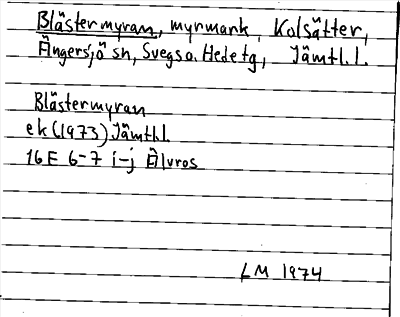 Blästermyran, myrmark, Kolsätter,
Ängersjö sn, Svegs o. Hede tg, Jämtl. l.
Blästermyran
ek (1973) Jämtl.l
16E 6-7 i-j Älvros
LM 1974